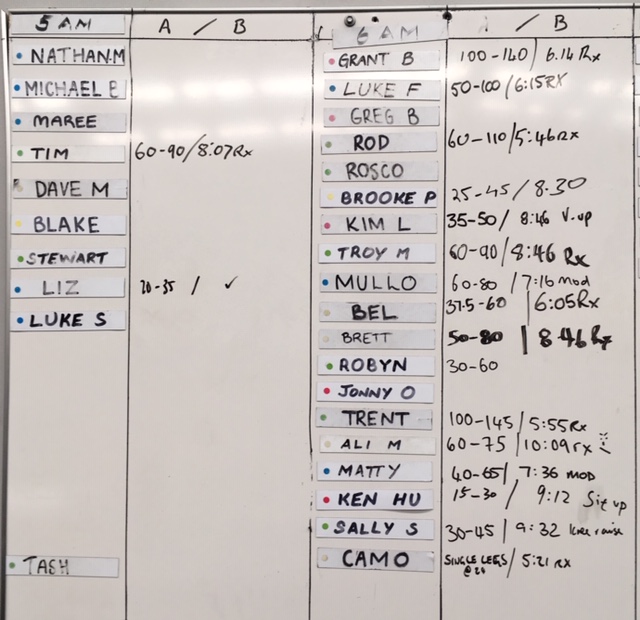 5 AM A / B
NATHAN.M
MICHAEL B
MAREE
TIM 60-90/8:07Rx
DAVE M
BLAKE
STEWART
LIZ 20-35 / ✓
LUKE S
TASH
6 AM / B
GRANT B 100-140/ 6.14 Rx
LUKE F 50-100/6:15RX
GREG B
ROD 60-110/5:46Rx
ROSCO
BROOKE P 25-45/8.30
KIM L 35-50/ 8:46 V-up
TROY M 60-90/8:46 Rx
MULLO 60-80 /7:16 mod
BEL 37.5-60 /6:05Rx
BRETT 50-80 / 8 46 Rx
ROBYN 30-60
JONNY O
TRENT 100-145/5:55Rx
ALI M 60-75/10:09rx
MATTY 40-65/ 7:36 MOD
KEN HU 15-30 / 9:12 Sit up
SALLY S 30-45 / 9:32 knee raise
CAMO SINGLE LEGS / 5:21 RX
@24